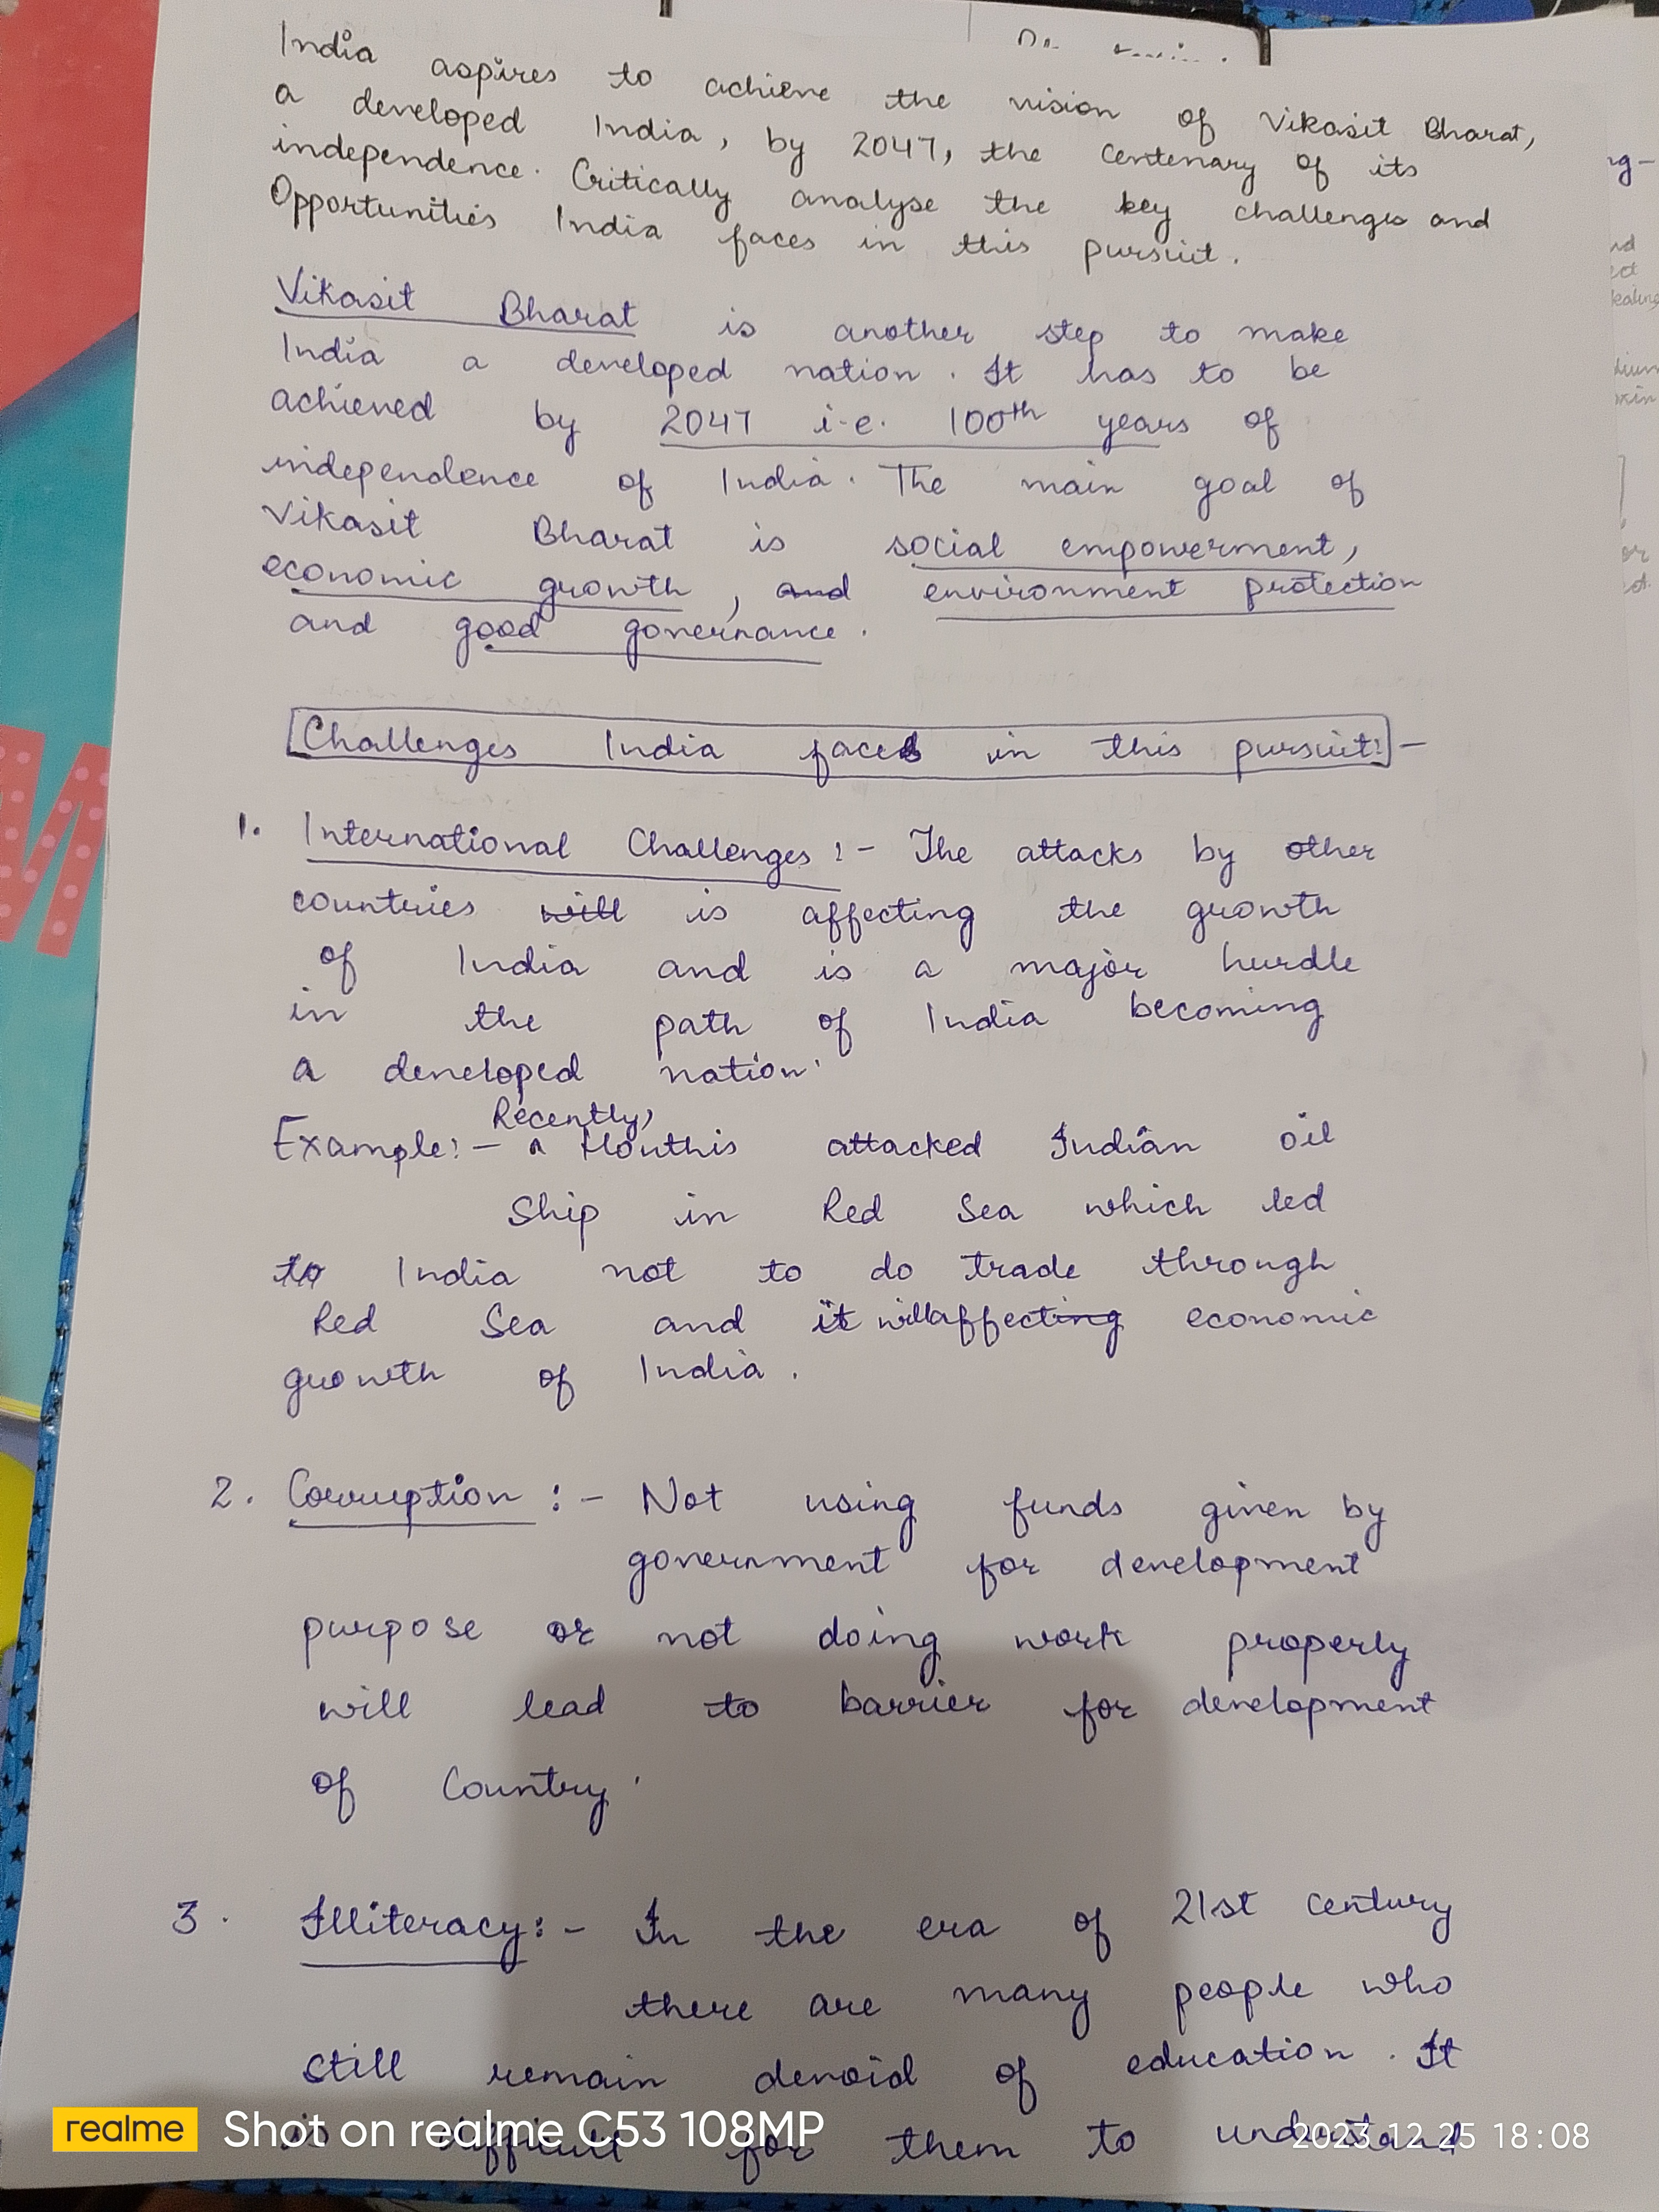 India aspires to achieve the vision of Vikasit Bharat,
a developed India, by 2047, the Centenary of its
independence. Critically analyse the key challenges and
Opportunities India faces in this pursuit.
Vikasit Bharat is another step to make
India a developed nation. It has to be
achieved by 2047 i.e. 100th years of
independence of India. The main goal of
Vikasit Bharat is social empowerment,
economic growth, and environment protection
and good governance.
Challenges India faces in this pursuit:-
1. International Challenges :- The attacks by other
countries will is affecting the growth
of India and is a major hurdle
in the path of India becoming
a developed nation.
Recently,
Example:- Houthis attacked Indian oil
Ship in Red Sea which led
to India not to do trade through
Red Sea and it will affecting economic
growth of India.
2. Corruption :- Not using funds given by
government for development
purpose or not doing work properly
will lead to barrier for development
of Country.
3. Illiteracy:- In the era of 21st century
there are many people who
still remain devoid of education. It
is difficult for them to understand
realme Shot on realme C53 108MP
2023.12.25 18:08